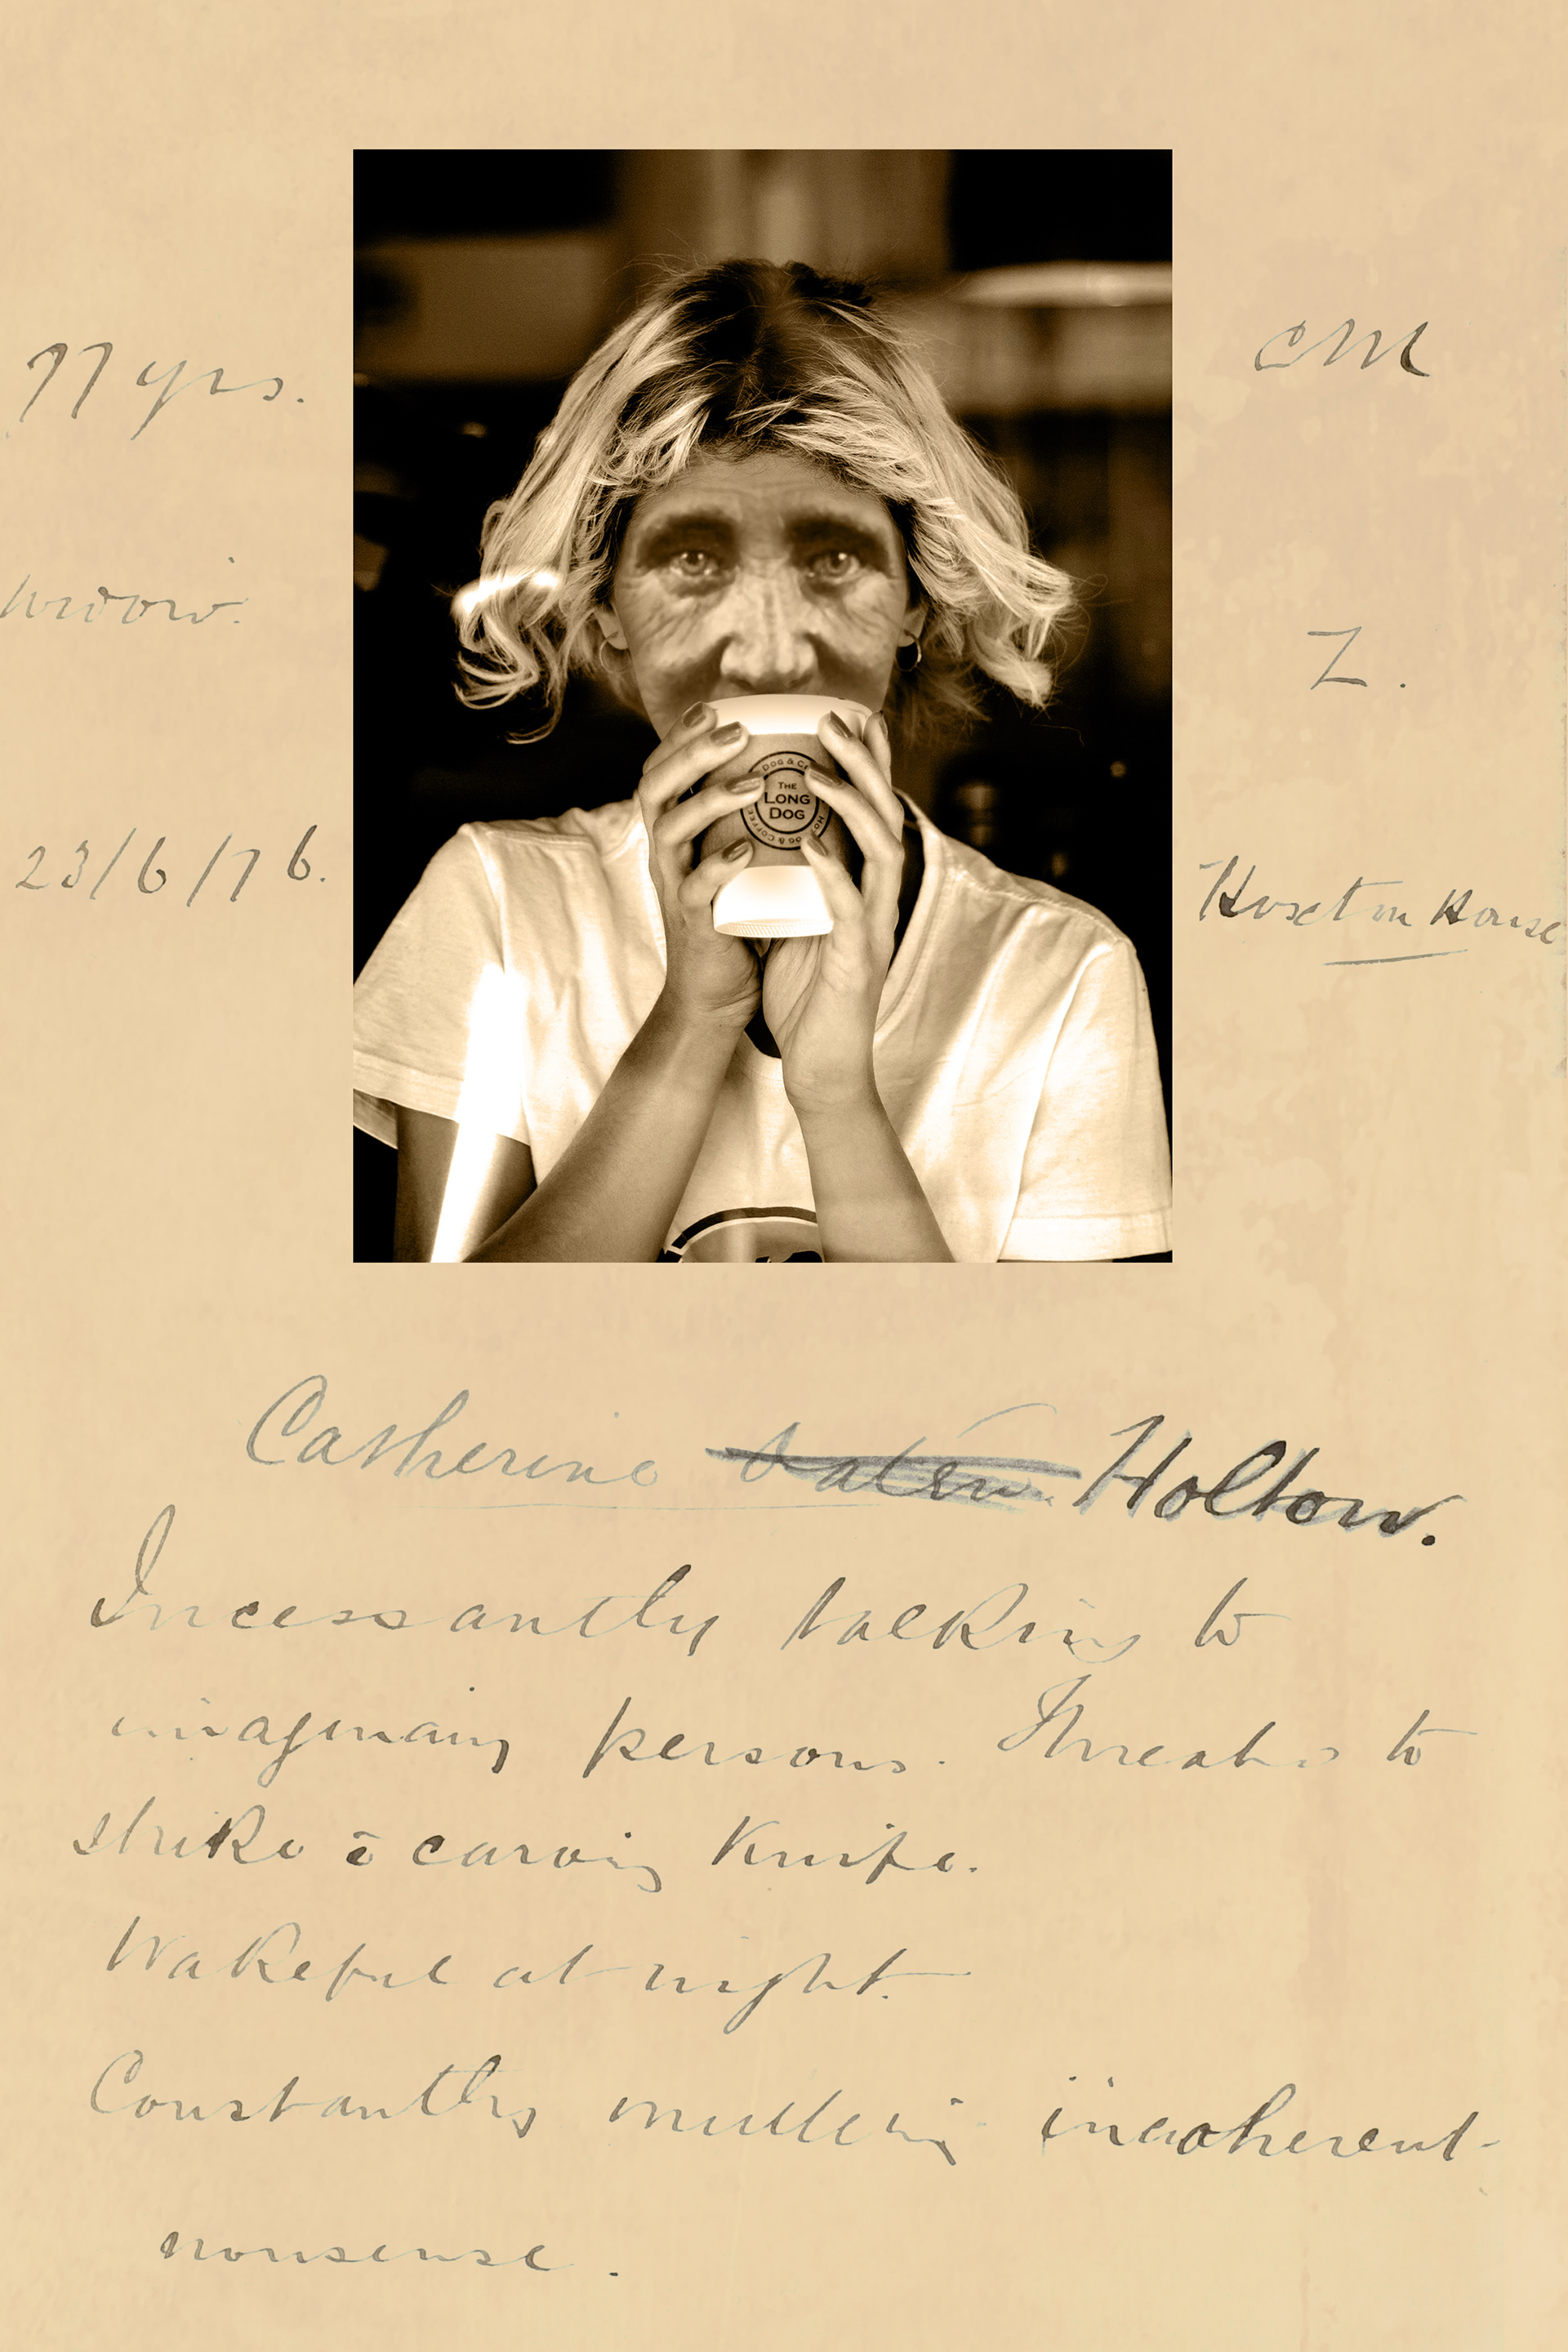 77 yrs.
CM
Widow.
Z.
23/6/76.
Hoxton House
DOG & CO
THE
LONG
DOG
HO DOG & COFFEE
Catherine Holton.
Incessantly talking to
imaginary persons. Threatens to
strike c̄ carving Knife.
Wakeful at night.
Constantly muttering incoherent
nonsense.